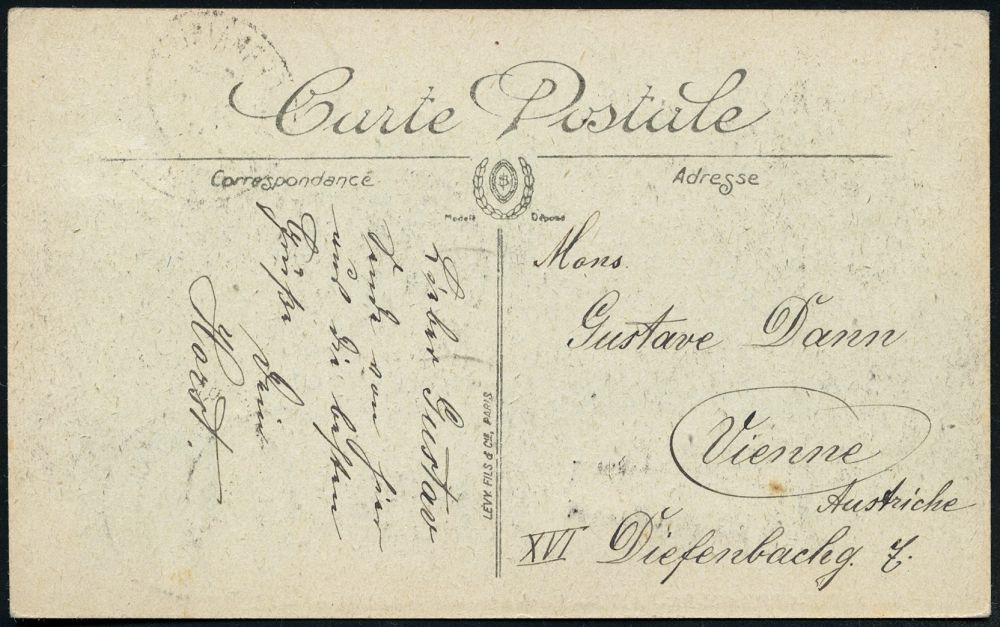 Carte Postale
Correspondance
Adresse
Modèle Déposé
Lieber Gustav
Sende von hier
aus die besten
Grüße
Dein
Horst.
LEVY FILS & Cie, PARIS
Mons.
Gustave Dann
Vienne
Austriche
XVI Diefenbachg. 7.